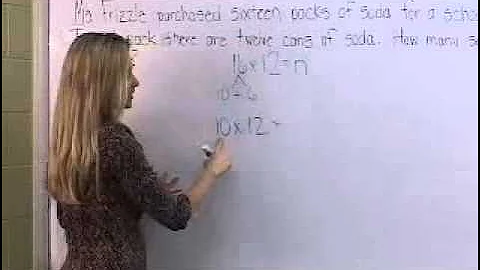 Ms Frizzle purchased sixteen packs of soda for a scho
pack there are twelve cans of soda. How many s
16 x 12 = n
10 + 6
10 x 12